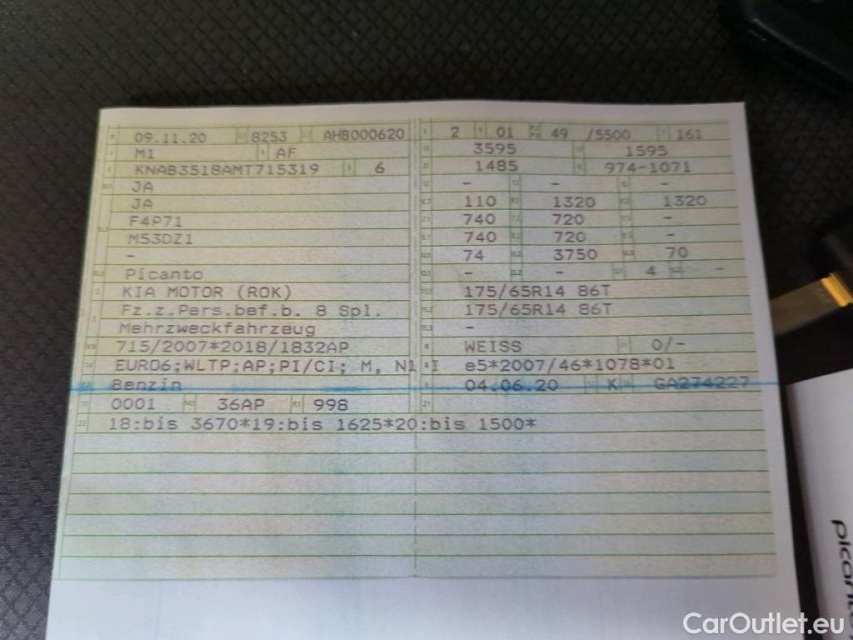 09.11.20 8253 AHB000620 2 01 49 /5500 161
M1 AF 3595 1595
KNAB3518AMT715319 6 1485 974-1071
JA - - -
JA 110 1320 1320
F4P71 740 720 -
M53DZ1 740 720 -
- 74 3750 70
Picanto - - 4 -
KIA MOTOR (ROK) 175/65R14 86T
Fz.z.Pers.bef.b. 8 Spl. 175/65R14 86T
Mehrzweckfahrzeug -
715/2007*2018/1832AP WEISS 0/-
EURO6;WLTP;AP;PI/CI; M, N1 I e5*2007/46*1078*01
Benzin 04.06.20 K GA274227
0001 36AP 998
18:bis 3670*19:bis 1625*20:bis 1500*
CarOutlet.eu